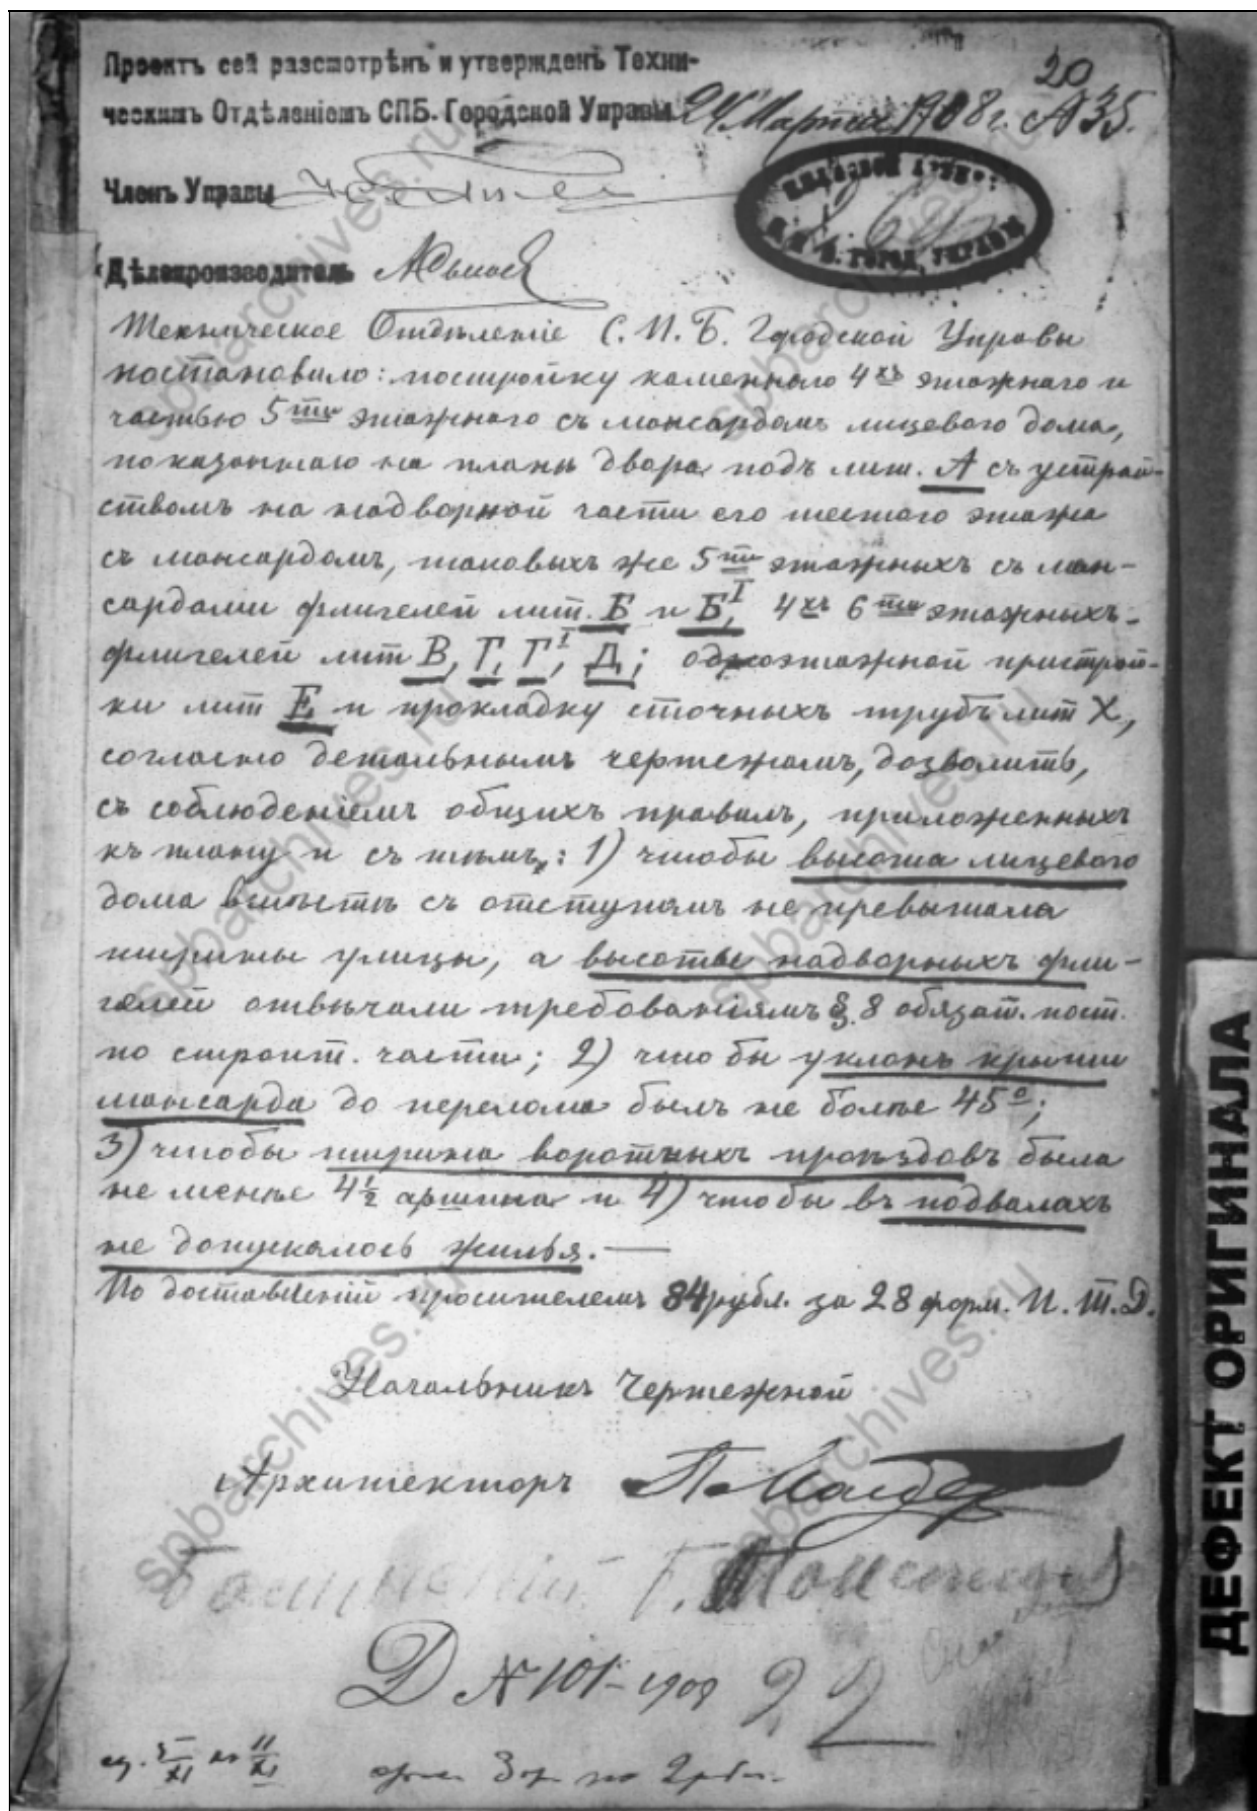 20
Проектъ сей разсмотрѣнъ и утвержденъ Техни-
ческимъ Отдѣленіемъ СПБ. Городской Управы 24 Марта 1908 г. № 35.
Членъ Управы
Дѣлопроизводитель
ГОРОД. УПРАВЫ
Техническое Отдѣленіе С. П. Б. Городской Управы
постановило: постройку каменнаго 4хъ этажнаго и
частью 5ти этажнаго съ мансардомъ лицевого дома,
показаннаго на планѣ двора подъ лит. А съ устрой-
ствомъ на надворной части его шестого этажа
съ мансардомъ, таковыхъ же 5ти этажныхъ съ ман-
сардами флигелей лит. Б и БI, 4хъ 6ти этажныхъ
флигелей лит В, Г, ГI, Д; одноэтажной пристрой-
ки лит Е и прокладку сточныхъ трубъ лит Х,
согласно детальнымъ чертежамъ, дозволить,
съ соблюденіемъ общихъ правилъ, приложенныхъ
къ плану и съ тѣмъ: 1) чтобы высота лицевого
дома вмѣстѣ съ отступомъ не превышала
ширины улицы, а высоты надворныхъ фли-
гелей отвѣчали требованіямъ § 8 обязат. пост.
по строит. части; 2) что бы уклонъ крыши
мансарда до перелома былъ не болѣе 45°;
3) чтобы ширина воротныхъ проѣздовъ была
не менѣе 4 1/2 аршина и 4) чтобы въ подвалахъ
не допускалось жилья. —
По доставленіи просителемъ 84 рубл. за 28 форм. П. Т. Д.
Начальникъ Чертежной
Архитекторъ
Д № 101 - 1908 22
spbarchives.ru
spbarchives.ru
spbarchives.ru
spbarchives.ru
spbarchives.ru
spbarchives.ru
ДЕФЕКТ ОРИГИНАЛА